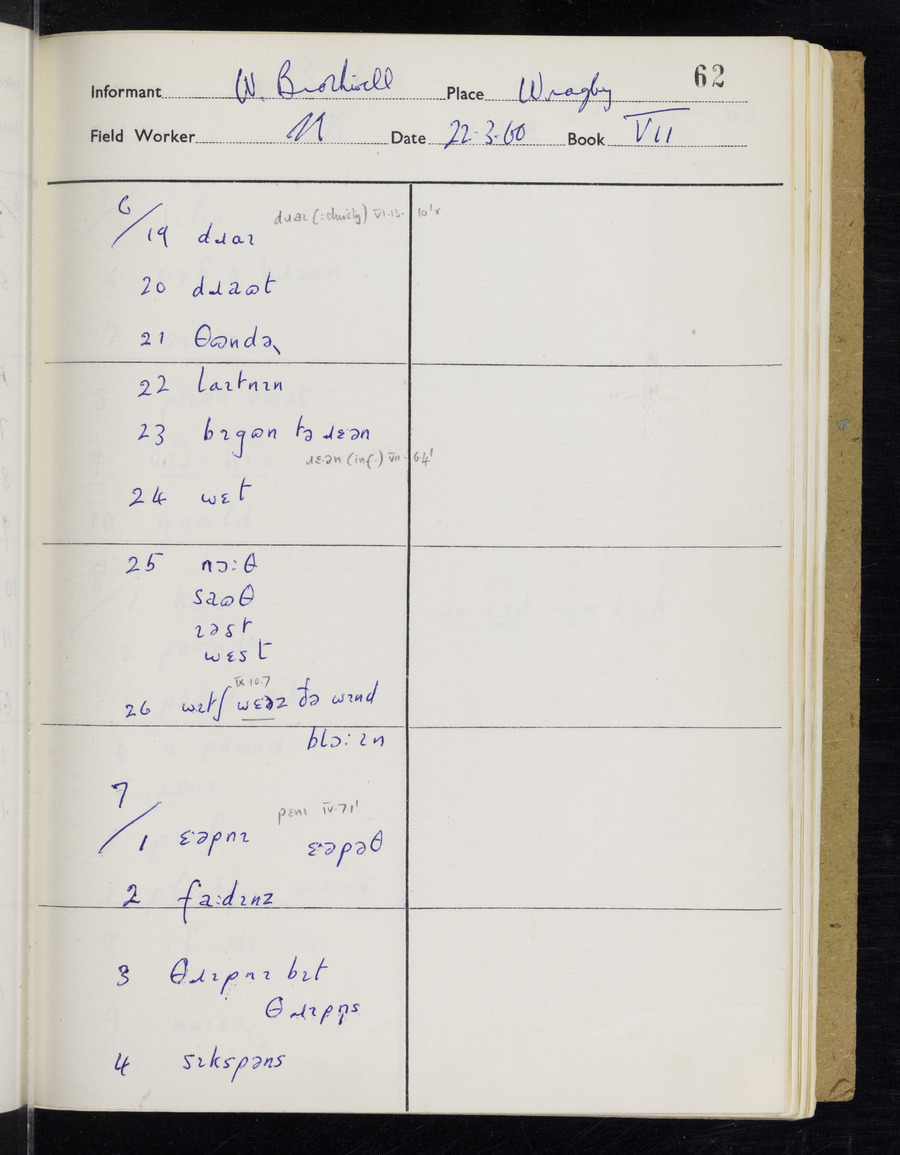 62
Informant W. Brothwell Place Wragby
Field Worker N Date 22.3.60 Book VII
6/19 dɹaɪ dɹaɪ (=thirsty) VI.13. 10'v
20 dɹaʊt
21 θʊndə
22 laɪtnɪn
23 bɪgʊn tə ɹɛ·ən
ɹɛ·ən (inf.) VII.6.4'
24 wɛt
25 nɔ:θ
saʊθ
ɪəst
wɛst
IX.10.7
26 wɪtʃ wɛəz ðə wɪnd
blɔ:ɪn
7/1 ɛ·əpnɪ pɛnɪ IV.7.1' ɛ·əpəθ
2 fa:dɪnz
3 θɹɪpnɪ bɪt
θɹɪpn̩s
4 sɪkspəns